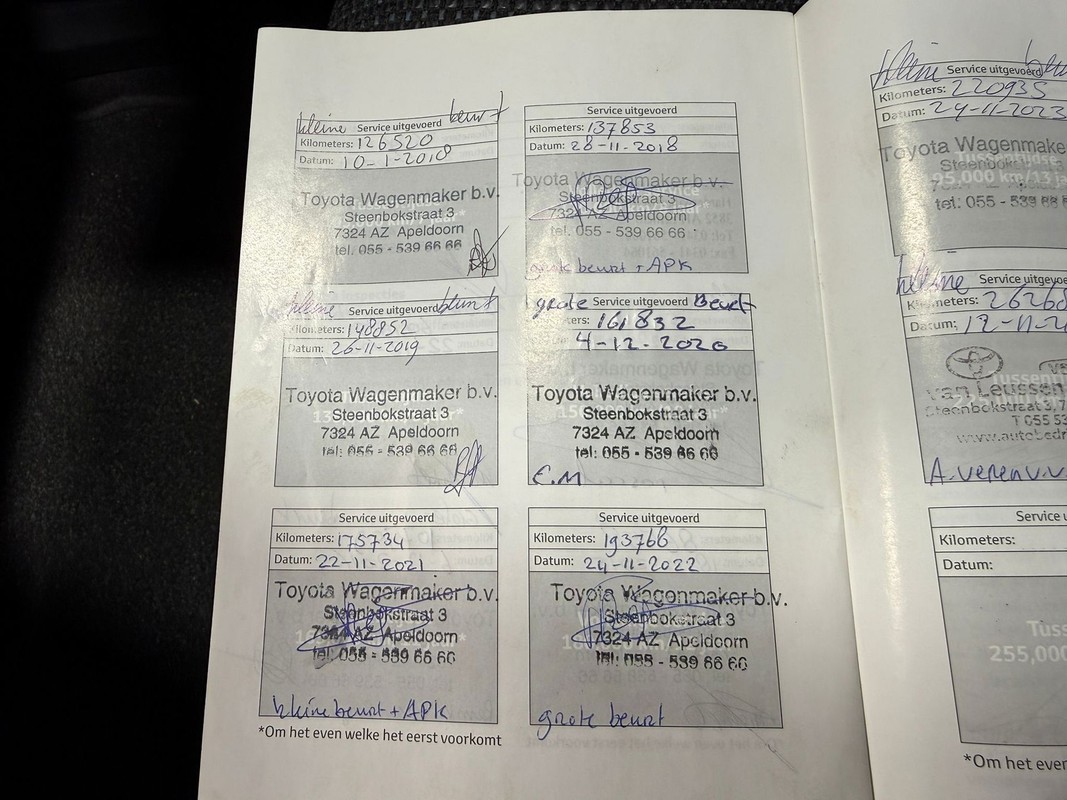 kleine Service uitgevoerd beurt
Kilometers: 126520
Datum: 10-1-2018
Toyota Wagenmaker b.v.
Steenbokstraat 3
7324 AZ Apeldoorn
tel. 055 - 539 66 66
Service uitgevoerd
Kilometers: 137853
Datum: 28-11-2018
Toyota Wagenmaker b.v.
Steenbokstraat 3
7324 AZ Apeldoorn
tel. 055 - 539 66 66
grote beurt + APK
kleine Service uitgevoerd beurt
Kilometers: 148852
Datum: 26-11-2019
Toyota Wagenmaker b.v.
Steenbokstraat 3
7324 AZ Apeldoorn
tel: 055 - 539 66 66
grote Service uitgevoerd Beurt
ters: 161832
4-12-2020
Toyota Wagenmaker b.v.
Steenbokstraat 3
7324 AZ Apeldoorn
tel: 055 - 539 66 66
E.M
Service uitgevoerd
Kilometers: 175734
Datum: 22-11-2021
Toyota Wagenmaker b.v.
Steenbokstraat 3
7324 AZ Apeldoorn
tel: 055 - 539 66 66
kleine beurt + APK
Service uitgevoerd
Kilometers: 193766
Datum: 24-11-2022
Toyota Wagenmaker b.v.
Steenbokstraat 3
7324 AZ Apeldoorn
tel: 055 - 539 66 66
grote beurt
*Om het even welke het eerst voorkomt
kleine Service uitgevoerd
Kilometers: 220935
Datum: 24-11-2023
Toyota Wagenmake
Steenboks
95.000 km/13 ja
tel: 055 - 539
kleine Service uitgevoe
Kilometers: 26268
Datum: 12-11-2
van Leussen
Steenbokstraat 3, 7
T 055 53
www.autobedr
Service u
Kilometers:
Datum:
Tuss
255,000
*Om het even